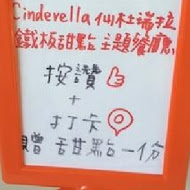 Cinderella 仙杜瑞拉
鐵板甜點主題餐廳
按讚
+
打卡
贈 甜點一份